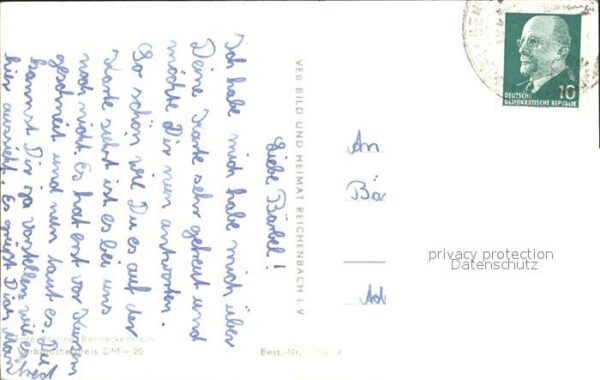 Liebe Bärbel!
Ich habe mich habe mich über
Deine Karte sehr gefreut und
möchte Dir nun antworten.
So schön wie Du es auf der
Karte siehst ist es bei uns
noch nicht. Es hat erst vor kurzem
geschneit und nun taut es. Du
kannst Dir ja vorstellen wie es
hier aussieht. Es grüßt Dich
VEB BILD UND HEIMAT REICHENBACH I. V.
An
Bä
Ad
DEUTSCHE
DEMOKRATISCHE REPUBLIK
10
BEN
privacy protection
Datenschutz
Foto: Hahne, Benneckenstein
Verbraucherpreis DM -,20
Best.-Nr.